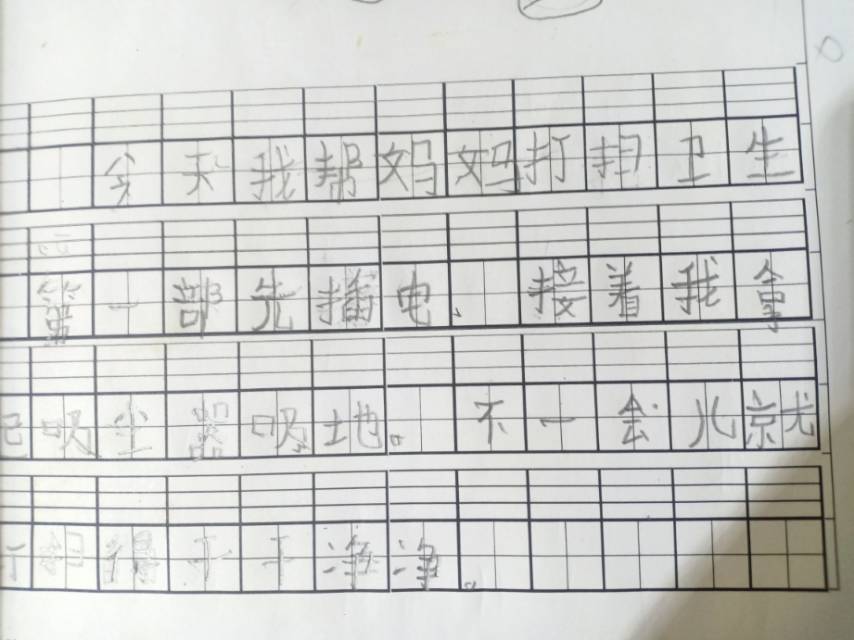 今天我帮妈妈打扫卫生
第一部先播电，接着我拿
吸尘器吸地。不一会儿就
干干净净。